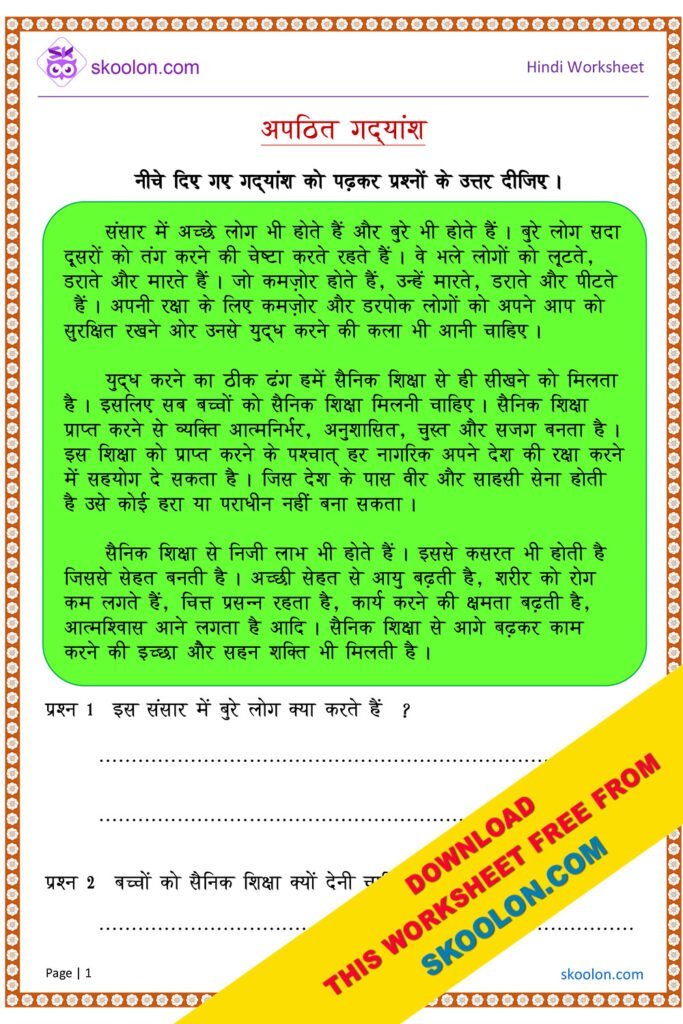 skoolon.com
Hindi Worksheet
अपठित गद्यांश
नीचे दिए गए गद्यांश को पढ़कर प्रश्नों के उत्तर दीजिए ।
संसार में अच्छे लोग भी होते हैं और बुरे भी होते हैं । बुरे लोग सदा
दूसरों को तंग करने की चेष्टा करते रहते हैं । वे भले लोगों को लूटते,
डराते और मारते हैं । जो कमज़ोर होते हैं, उन्हें मारते, डराते और पीटते
हैं । अपनी रक्षा के लिए कमज़ोर और डरपोक लोगों को अपने आप को
सुरक्षित रखने ओर उनसे युद्ध करने की कला भी आनी चाहिए ।
युद्ध करने का ठीक ढंग हमें सैनिक शिक्षा से ही सीखने को मिलता
है । इसलिए सब बच्चों को सैनिक शिक्षा मिलनी चाहिए । सैनिक शिक्षा
प्राप्त करने से व्यक्ति आत्मनिर्भर, अनुशासित, चुस्त और सजग बनता है ।
इस शिक्षा को प्राप्त करने के पश्चात् हर नागरिक अपने देश की रक्षा करने
में सहयोग दे सकता है । जिस देश के पास वीर और साहसी सेना होती
है उसे कोई हरा या पराधीन नहीं बना सकता ।
सैनिक शिक्षा से निजी लाभ भी होते हैं । इससे कसरत भी होती है
जिससे सेहत बनती है । अच्छी सेहत से आयु बढ़ती है, शरीर को रोग
कम लगते हैं, चित्त प्रसन्न रहता है, कार्य करने की क्षमता बढ़ती है,
आत्मश्विास आने लगता है आदि । सैनिक शिक्षा से आगे बढ़कर काम
करने की इच्छा और सहन शक्ति भी मिलती है ।
प्रश्न 1 इस संसार में बुरे लोग क्या करते हैं ?
प्रश्न 2 बच्चों को सैनिक शिक्षा क्यों देनी
DOWNLOAD
THIS WORKSHEET FREE FROM
SKOOLON.COM
Page | 1
skoolon.com